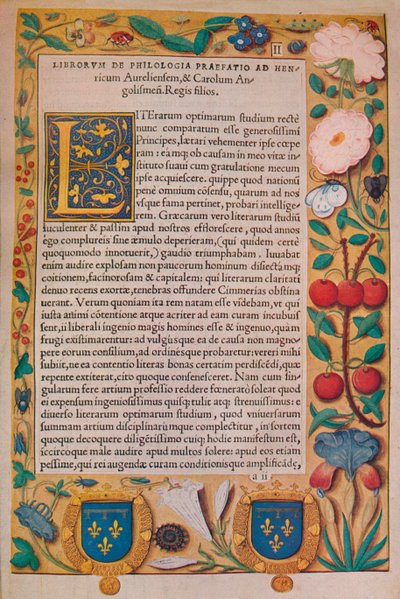 II
LIBRORVM DE PHILOLOGIA PRAEFATIO AD HEN=
ricum Aureliensem, & Carolum An=
golismeñ. Regis filios.
LITErarum optimarum studium rectè
nunc comparatum esse generosissimi
Principes, lætari vehementer ipse cœpe
ram: ea mq; ob causam in meo vitæ in=
stituto suaui cum gratulatione mecum
ipse acquiescere. quippe quod nationũ
penè omnium cõsensu, quarum ad nos
vsque fama pertinet, probari intellige=
rem. Græcarum vero literarum studiũ
luculenter & passim apud nostros efflorescere, quod annos
ego complureis sine æmulo deperieram, (qui quidem certè
quoquomodo innotuerit,) gaudio triumphabam. Iuuabat
enim audire explosam non paucorum hominum disiectã mq;
coitionem, facinorosam & capitalem: qui literarum claritati
denuo recens exortæ, tenebras offundere Cimmerias obstina
uerant. Verum quoniam ita rem natam esse videbam, vt qui
iusta animi cõtentione atque acriter ad eam curam incubuis
sent, ii liberali ingenio magis homines esse & ingenuo, quàm
frugi existimarentur: ad vulgúsque ea de causa non magno=
pere eorum consilium, ad ordinésque probaretur: vereri mihi
subiit, ne ea contentio literas bonas certatim perdiscẽdi, quæ
repente extiterat, citò quoque consenesceret. Nam cum sin=
gularum ferè artium professio reddere fœneratò soleat quod
ei expensum ingeniosissimus quisq; tulit atq; strenuissimus: e
diuerso literarum optimarum studium, quod vniuersarum
summam artium disciplinarúmque complectitur, in sortem
quoque decoquere diligẽtissimo cuiq; hodie manifestum est,
iccircoque male audire apud multos solere: apud eos etiam
pessime, qui rei augendæ curam conditionisque amplificãdę,
a ii